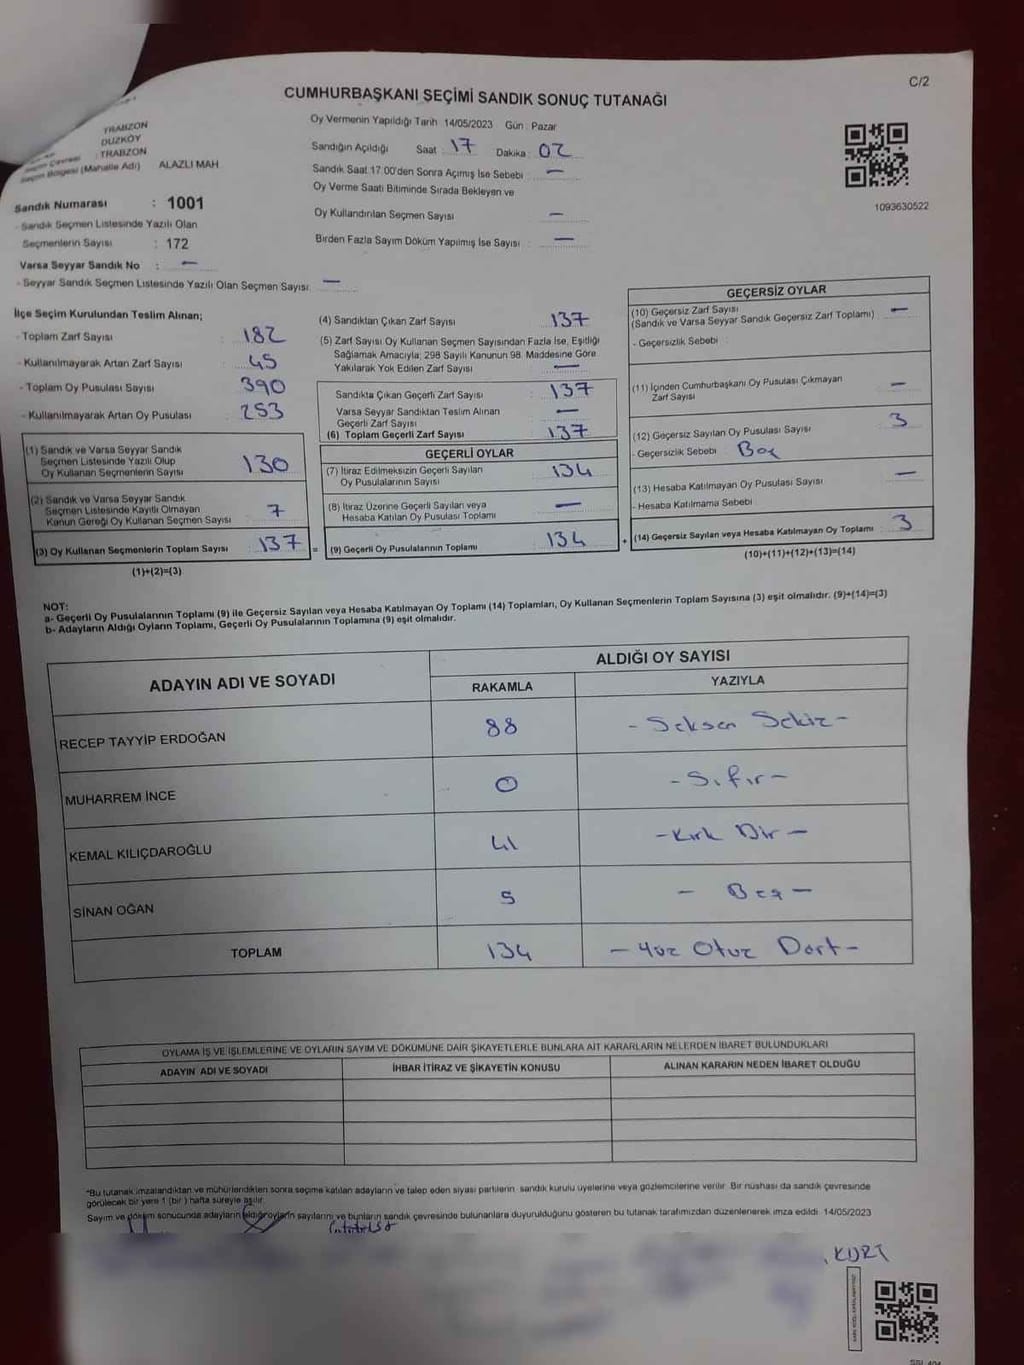 C/2
CUMHURBAŞKANI SEÇİMİ SANDIK SONUÇ TUTANAĞI
TRABZON
DÜZKÖY
Seçim Çevresi : TRABZON
Seçim Bölgesi (Mahalle Adı) ALAZLI MAH.
Sandık Numarası : 1001
- Sandık Seçmen Listesinde Yazılı Olan
Seçmenlerin Sayısı : 172
Varsa Seyyar Sandık No : —
- Seyyar Sandık Seçmen Listesinde Yazılı Olan Seçmen Sayısı: —
Oy Vermenin Yapıldığı Tarih 14/05/2023 Gün : Pazar
Sandığın Açıldığı Saat : 17 Dakika : 02
Sandık Saat 17:00'den Sonra Açımış İse Sebebi : —
Oy Verme Saati Bitiminde Sırada Bekleyen ve
Oy Kullandırılan Seçmen Sayısı : —
Birden Fazla Sayım Döküm Yapılmış İse Sayısı : —
1093630522
İlçe Seçim Kurulundan Teslim Alınan;
- Toplam Zarf Sayısı : 182
- Kullanılmayarak Artan Zarf Sayısı : 45
- Toplam Oy Pusulası Sayısı : 390
- Kullanılmayarak Artan Oy Pusulası : 253
(1) Sandık ve Varsa Seyyar Sandık
Seçmen Listesinde Yazılı Olup
Oy Kullanan Seçmenlerin Sayısı 130
(2) Sandık ve Varsa Seyyar Sandık
Seçmen Listesinde Kayıtlı Olmayan
Kanun Gereği Oy Kullanan Seçmen Sayısı 7
(3) Oy Kullanan Seçmenlerin Toplam Sayısı 137
(1)+(2)=(3)
(4) Sandıktan Çıkan Zarf Sayısı 137
(5) Zarf Sayısı Oy Kullanan Seçmen Sayısından Fazla İse, Eşitliği
Sağlamak Amacıyla; 298 Sayılı Kanunun 98. Maddesine Göre
Yakılarak Yok Edilen Zarf Sayısı —
Sandıkta Çıkan Geçerli Zarf Sayısı : 137
Varsa Seyyar Sandıktan Teslim Alınan
Geçerli Zarf Sayısı : —
(6) Toplam Geçerli Zarf Sayısı : 137
GEÇERLİ OYLAR
(7) İtiraz Edilmeksizin Geçerli Sayılan
Oy Pusulalarının Sayısı 134
(8) İtiraz Üzerine Geçerli Sayılan veya
Hesaba Katılan Oy Pusulası Toplamı —
= (9) Geçerli Oy Pusulalarının Toplamı 134 +
GEÇERSİZ OYLAR
(10) Geçersiz Zarf Sayısı
(Sandık ve Varsa Seyyar Sandık Geçersiz Zarf Toplamı) —
- Geçersizlik Sebebi :
(11) İçinden Cumhurbaşkanı Oy Pusulası Çıkmayan
Zarf Sayısı —
(12) Geçersiz Sayılan Oy Pusulası Sayısı 3
- Geçersizlik Sebebi : Boş
(13) Hesaba Katılmayan Oy Pusulası Sayısı —
- Hesaba Katılmama Sebebi :
(14) Geçersiz Sayılan veya Hesaba Katılmayan Oy Toplamı 3
(10)+(11)+(12)+(13)=(14)
NOT:
a- Geçerli Oy Pusulalarının Toplamı (9) ile Geçersiz Sayılan veya Hesaba Katılmayan Oy Toplamı (14) Toplamları, Oy Kullanan Seçmenlerin Toplam Sayısına (3) eşit olmalıdır. (9)+(14)=(3)
b- Adayların Aldığı Oyların Toplamı, Geçerli Oy Pusulalarının Toplamına (9) eşit olmalıdır.
ADAYIN ADI VE SOYADI ALDIĞI OY SAYISI
RAKAMLA YAZIYLA
RECEP TAYYİP ERDOĞAN 88 - Seksen Sekiz -
MUHARREM İNCE 0 - Sıfır -
KEMAL KILIÇDAROĞLU 41 - Kırk Bir -
SİNAN OĞAN 5 - Beş -
TOPLAM 134 - Yüz Otuz Dört -
OYLAMA İŞ VE İŞLEMLERİNE VE OYLARIN SAYIM VE DÖKÜMÜNE DAİR ŞİKAYETLERLE BUNLARA AİT KARARLARIN NELERDEN İBARET BULUNDUKLARI
ADAYIN ADI VE SOYADI İHBAR İTİRAZ VE ŞİKAYETİN KONUSU ALINAN KARARIN NEDEN İBARET OLDUĞU
*Bu tutanak imzalandıktan ve mühürlendikten sonra seçime katılan adayların ve talep eden siyasi partilerin sandık kurulu üyelerine veya gözlemcilerine verilir. Bir nüshası da sandık çevresinde
görülecek bir yere 1 (bir) hafta süreyle asılır.
Sayım ve döküm sonucunda adayların aldığı oyların sayılarını ve bunların sandık çevresinde bulunanlara duyurulduğunu gösteren bu tutanak tarafımızdan düzenlenerek imza edildi. 14/05/2023
KURT